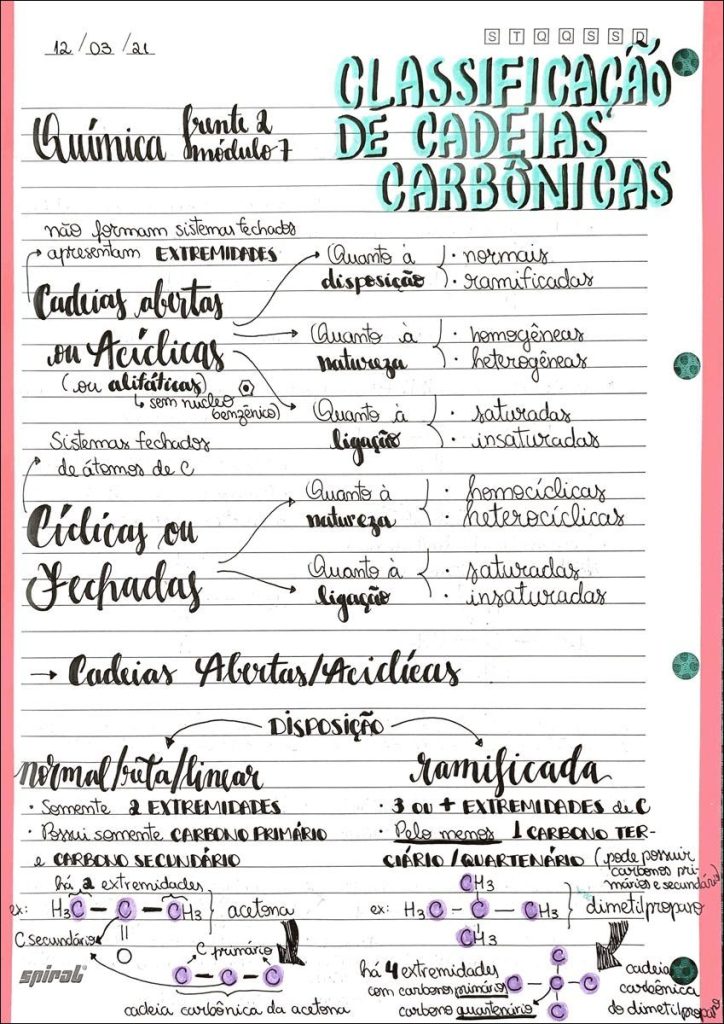 12/03/21
S T Q Q S S D
CLASSIFICAÇÃO
DE CADEIAS
CARBÔNICAS
Química frente 2
módulo 7
não formam sistemas fechados
apresentam EXTREMIDADES
Cadeias abertas
ou Acíclicas
(ou alifáticas)
↳ sem núcleo
benzênico)
Quanto à
disposição
· normais
· ramificadas
Quanto à
natureza
· homogêneas
· heterogêneas
Quanto à
ligação
· saturadas
· insaturadas
Sistemas fechados
de átomos de C
Cíclicas ou
Fechadas
Quanto à
natureza
· homocíclicas
· heterocíclicas
Quanto à
ligação
· saturadas
· insaturadas
→ Cadeias Abertas/Aciclícas
DISPOSIÇÃO
normal/reta/linear
· Somente 2 EXTREMIDADES
· Possui somente CARBONO PRIMÁRIO
e CARBONO SECUNDÁRIO
há 2 extremidades
ex: H3C - C - CH3 } acetona
O
C secundário
C primário
C - C - C
cadeia carbônica da acetona
spiral
ramificada
· 3 OU + EXTREMIDADES de C
· Pelo menos 1 CARBONO TER-
CIÁRIO/QUARTENÁRIO (pode possuir
carbonos pri-
mários e secundário)
CH3
ex: H3C - C - CH3 } dimetilpropano
CH3
há 4 extremidades
com carbonos primários
carbono quartenário
C
C - C - C
C
cadeia
carbônica
do dimetilpropano